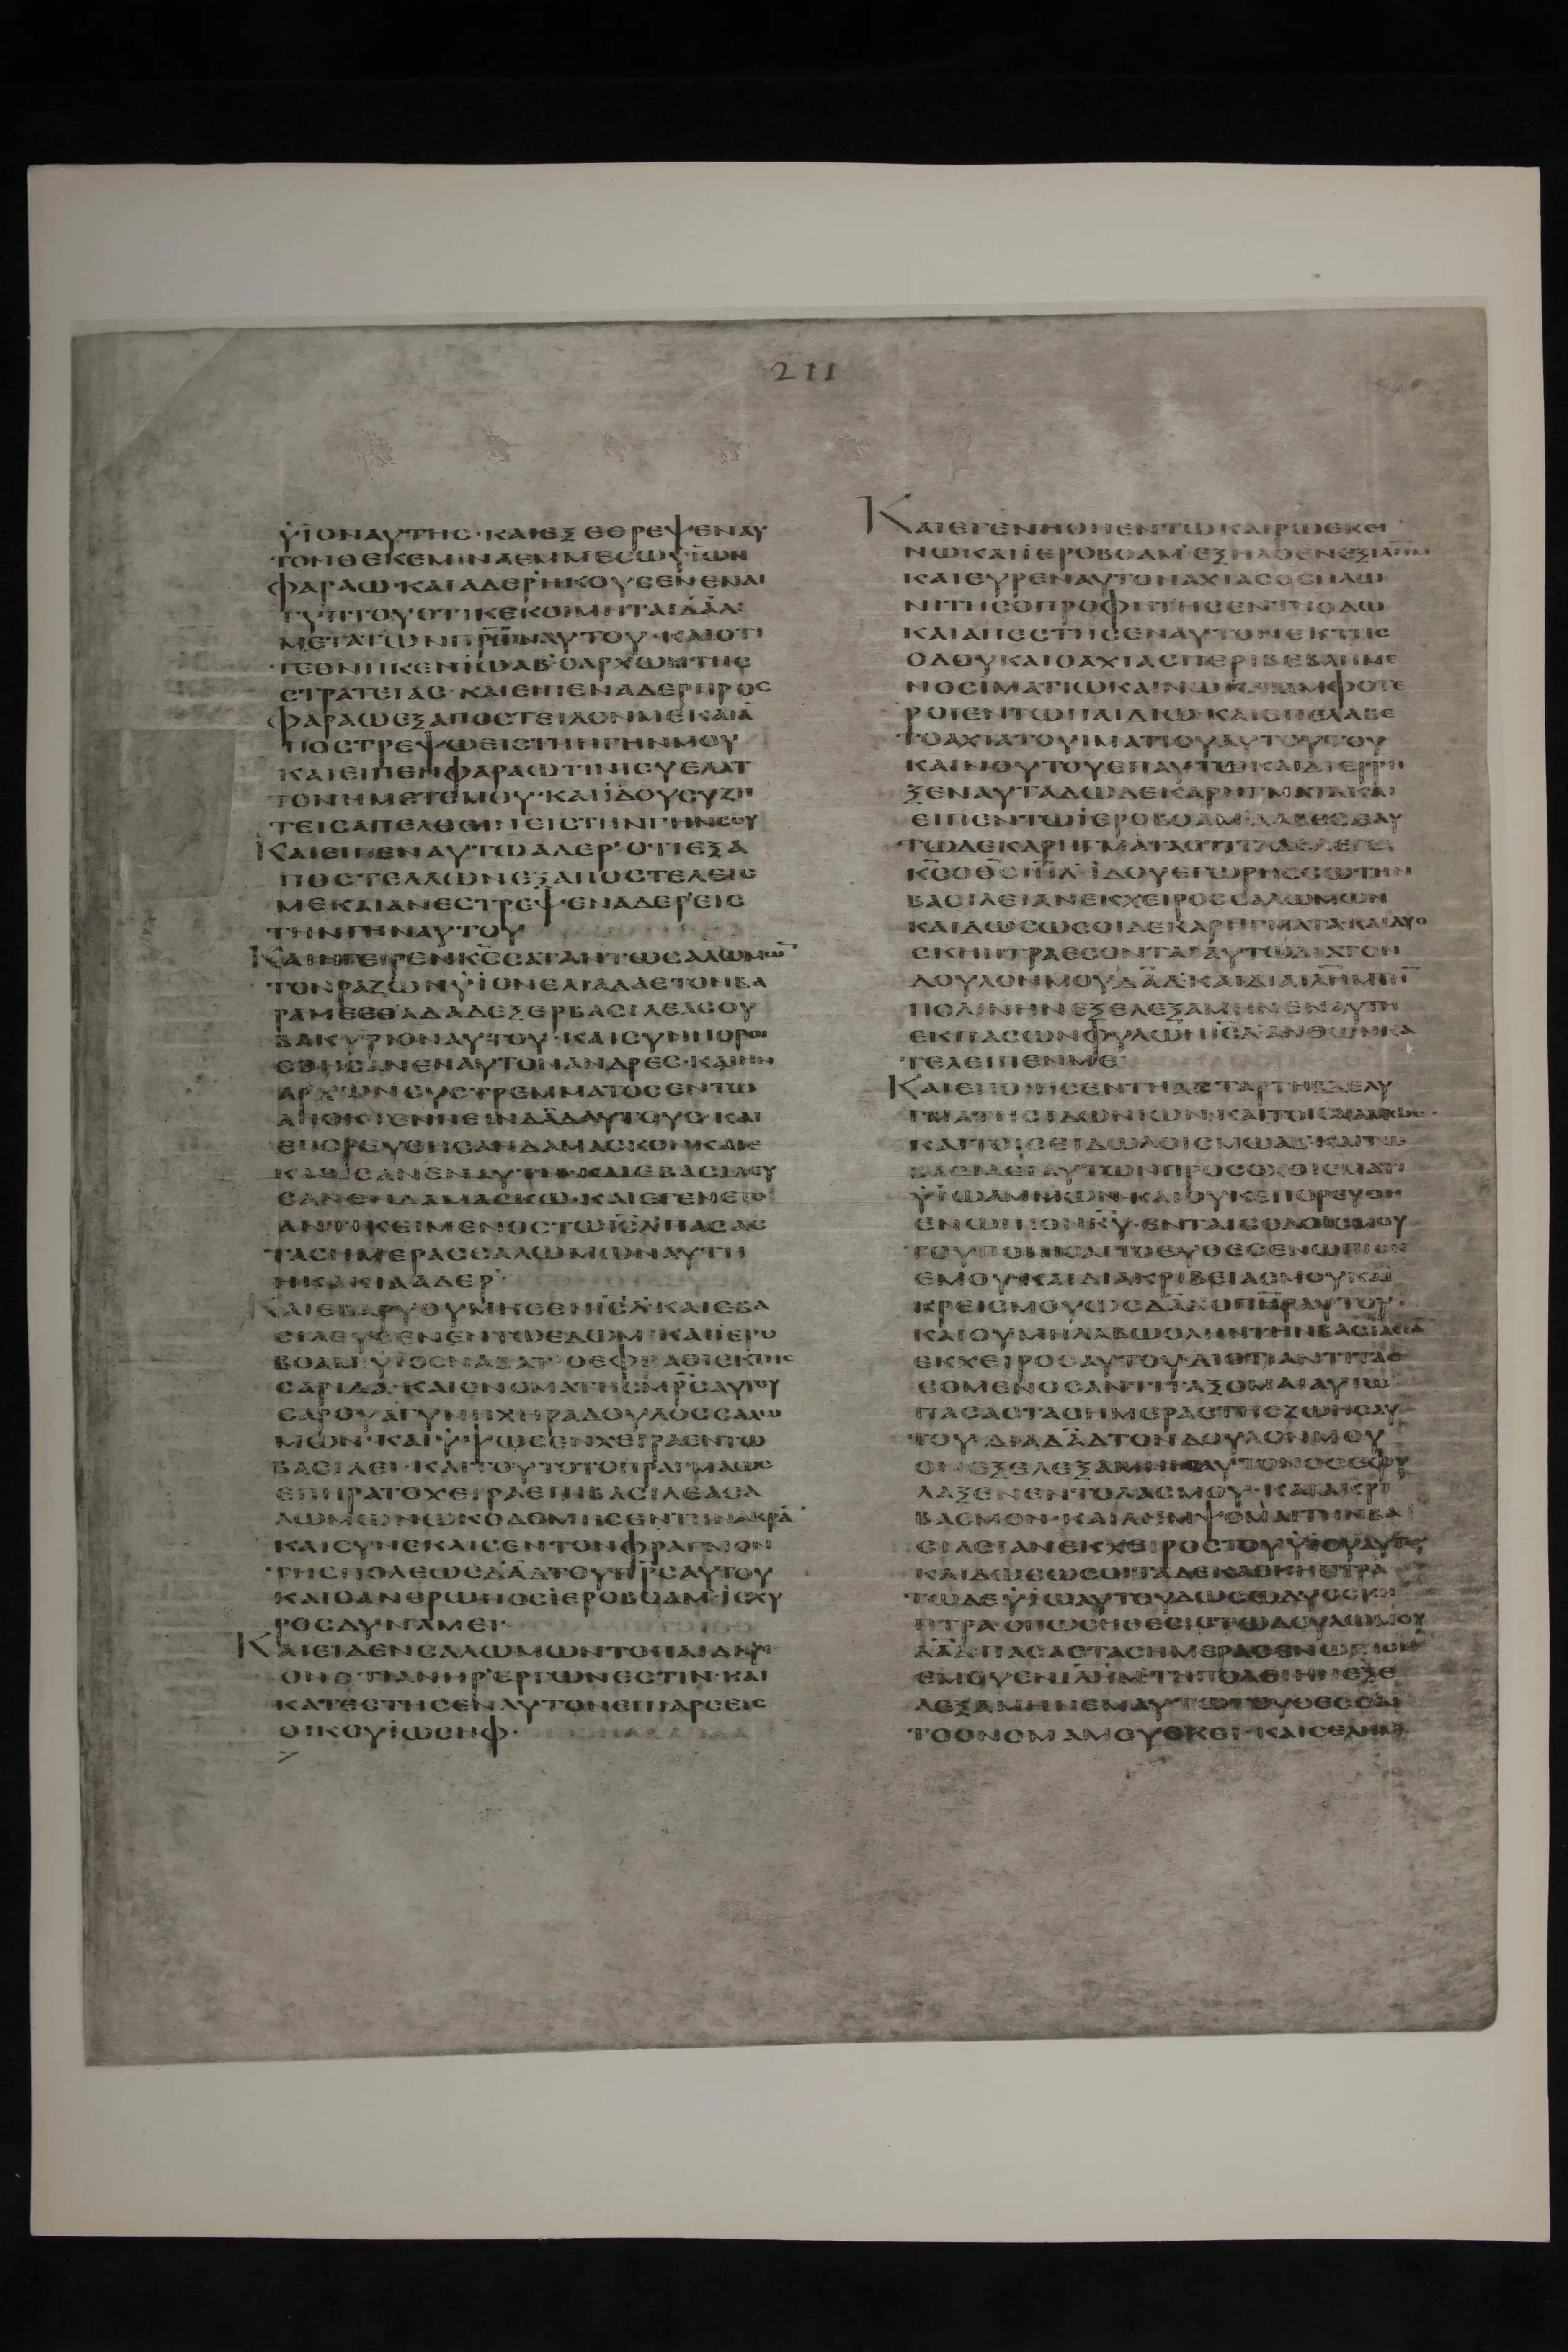 211
ΥΙΟΝΑΥΤΗΣ·ΚΑΙΕΞΕΘΡΕΨΕΝΑΥ
ΤΟΝΘΕΚΕΜΙΝΑΕΜΜΕΣΩΥΙΩΝ
ΦΑΡΑΩ·ΚΑΙΑΔΕΡΗΚΟΥΣΕΝΕΝΑΙ
ΓΥΠΤΟΥΟΤΙΚΕΚΟΙΜΗΤΑΙΔΑΔ
ΜΕΤΑΤΩΝΠΡΩΝΑΥΤΟΥ·ΚΑΙΟΤΙ
ΤΕΘΝΗΚΕΝΙΩΑΒ·ΟΑΡΧΩΝΤΗΣ
ΣΤΡΑΤΕΙΑΣ·ΚΑΙΕΙΠΕΝΑΔΕΡΠΡΟΣ
ΦΑΡΑΩΕΞΑΠΟΣΤΕΙΛΟΝΜΕΚΑΙΑ
ΠΟΣΤΡΕΨΩΕΙΣΤΗΝΓΗΝΜΟΥ
ΚΑΙΕΙΠΕΝΦΑΡΑΩΤΙΝΙΣΥΕΛΑΤ
ΤΟΝΗΜΕΤΕΜΟΥ·ΚΑΙΙΔΟΥΣΥΖΗ
ΤΕΙΣΑΠΕΛΘΕΙΝΕΙΣΤΗΝΓΗΝΣΟΥ
ΚΑΙΕΙΠΕΝΑΥΤΩΑΔΕΡ·ΟΤΙΕΞΑ
ΠΟΣΤΕΛΛΩΝΕΞΑΠΟΣΤΕΛΕΙΣ
ΜΕΚΑΙΑΝΕΣΤΡΕΨΕΝΑΔΕΡΕΙΣ
ΤΗΝΓΗΝΑΥΤΟΥ
ΚΑΙΗΓΕΙΡΕΝΚΣΣΑΤΑΝΤΩΣΑΛΩΜΩ
ΤΟΝΡΑΖΩΝΥΙΟΝΕΛΙΑΔΑΕΤΟΝΒΑ
ΡΑΜΕΕΘΑΔΑΔΕΖΕΡΒΑΣΙΛΕΑΣΟΥ
ΒΑΚΥΡΙΟΝΑΥΤΟΥ·ΚΑΙΣΥΝΗΘΡΟΙ
ΣΘΗΣΑΝΕΠΑΥΤΟΝΑΝΔΡΕΣ·ΚΑΙΗΝ
ΑΡΧΩΝΣΥΣΤΡΕΜΜΑΤΟΣΕΝΤΩ
ΑΠΟΚΤΕΝΝΕΙΝΔΑΔΑΥΤΟΥΣ·ΚΑΙ
ΕΠΟΡΕΥΘΗΣΑΝΔΑΜΑΣΚΟΝΚΑΙΕ
ΚΑΘΙΣΑΝΕΝΑΥΤΗ·ΚΑΙΕΒΑΣΙΛΕΥ
ΣΑΝΕΝΔΑΜΑΣΚΩ·ΚΑΙΕΓΕΝΕΤΟ
ΑΝΤΙΚΕΙΜΕΝΟΣΤΩΙΣΛΠΑΣΑΣ
ΤΑΣΗΜΕΡΑΣΣΑΛΩΜΩΝΑΥΤΗ
ΗΚΑΚΙΑΑΔΕΡ·
ΚΑΙΕΒΑΡΥΘΥΜΗΣΕΝΙΣΛΚΑΙΕΒΑ
ΣΙΛΕΥΣΕΝΕΝΓΗΕΔΩΜ·ΚΑΙΙΕΡΟ
ΒΟΑΜΥΙΟΣΝΑΒΑΤ·ΟΕΦΡΑΘΙΕΚΤΗΣ
ΣΑΡΙΔΑ·ΚΑΙΟΝΟΜΑΤΗΣΜΡΣΑΥΤΟΥ
ΣΑΡΟΥΑΓΥΝΗΧΗΡΑΔΟΥΛΟΣΣΑΛΩ
ΜΩΝ·ΚΑΙΥΨΩΣΕΝΧΕΙΡΑΕΝΤΩ
ΒΑΣΙΛΕΙ·ΚΑΙΤΟΥΤΟΤΟΠΡΑΓΜΑΩΣ
ΕΠΗΡΑΤΟΧΕΙΡΑΕΠΙΒΑΣΙΛΕΑΣΑ
ΛΩΜΩΝΩΚΟΔΟΜΗΣΕΝΤΗΝΑΚΡΑ
ΚΑΙΣΥΝΕΚΛΙΣΕΝΤΟΝΦΡΑΓΜΟΝ
ΤΗΣΠΟΛΕΩΣΔΑΔΤΟΥΠΡΣΑΥΤΟΥ
ΚΑΙΟΑΝΘΡΩΠΟΣΙΕΡΟΒΟΑΜ·ΙΣΧΥ
ΡΟΣΔΥΝΑΜΕΙ·
ΚΑΙΕΙΔΕΝΣΑΛΩΜΩΝΤΟΠΑΙΔΑΡΙ
ΟΝΟΤΙΑΝΗΡΕΡΓΩΝΕΣΤΙΝ·ΚΑΙ
ΚΑΤΕΣΤΗΣΕΝΑΥΤΟΝΕΠΙΑΡΣΕΙΣ
ΟΙΚΟΥΙΩΣΗΦ·
ΚΑΙΕΓΕΝΗΘΗΕΝΤΩΚΑΙΡΩΕΚΕΙ
ΝΩΚΑΙΙΕΡΟΒΟΑΜ·ΕΞΗΛΘΕΝΕΞΙΛΗΜ
ΚΑΙΕΥΡΕΝΑΥΤΟΝΑΧΙΑΣΟΣΗΛΩ
ΝΙΤΗΣΟΠΡΟΦΗΤΗΣΕΝΤΗΟΔΩ
ΚΑΙΑΠΕΣΤΗΣΕΝΑΥΤΟΝΕΚΤΗΣ
ΟΔΟΥΚΑΙΟΑΧΙΑΣΠΕΡΙΒΕΒΛΗΜΕ
ΝΟΣΙΜΑΤΙΩΚΑΙΝΩΚΑΙΑΜΦΟΤΕ
ΡΟΙΕΝΤΩΠΑΙΔΙΩ·ΚΑΙΕΠΕΛΑΒΕ
ΤΟΑΧΙΑΤΟΥΙΜΑΤΙΟΥΑΥΤΟΥΤΟΥ
ΚΑΙΝΟΥΤΟΥΕΠΑΥΤΩΚΑΙΔΙΕΡΡΗ
ΞΕΝΑΥΤΑΔΩΔΕΚΑΡΗΓΜΑΤΑΚΑΙ
ΕΙΠΕΝΤΩΙΕΡΟΒΟΑΜ·ΛΑΒΕΣΕΑΥ
ΤΩΔΕΚΑΡΗΓΜΑΤΑΟΤΙΤΑΔΕΛΕΓΕΙ
ΚΣΟΘΣΙΗΛ·ΙΔΟΥΕΓΩΡΗΣΣΩΤΗΝ
ΒΑΣΙΛΕΙΑΝΕΚΧΕΙΡΟΣΣΑΛΩΜΩΝ
ΚΑΙΔΩΣΩΣΟΙΔΕΚΑΡΗΓΜΑΤΑ·ΚΑΙΔΥΟ
ΣΚΗΠΤΡΑΕΣΟΝΤΑΙΑΥΤΩΔΙΑΤΟΝ
ΔΟΥΛΟΝΜΟΥΔΑΔ·ΚΑΙΔΙΑΙΛΗΜΤΗ
ΠΟΛΙΝΗΝΕΞΕΛΕΞΑΜΗΝΕΝΑΥΤΗ
ΕΚΠΑΣΩΝΦΥΛΩΝΙΣΛ·ΑΝΘΩΝΚΑ
ΤΕΛΕΙΠΕΝΜΕ
ΚΑΙΕΠΟΙΗΣΕΝΤΗΑΣΤΑΡΤΗΒΔΕΛΥ
ΓΜΑΤΙΣΙΔΩΝΙΩΝ·ΚΑΙΤΟΙΣ
ΚΑΙΤΟΙΣΕΙΔΩΛΟΙΣΜΩΑΒ·ΚΑΙΤΩ
ΒΑΣΙΛΕΙΑΥΤΩΝΠΡΟΣΟΧΘΙΣΜΑΤΙ
ΥΙΩΑΜΜΩΝ·ΚΑΙΟΥΚΕΠΟΡΕΥΘΗ
ΕΝΩΠΙΟΝΚΥ·ΕΝΤΑΙΣΟΔΟΙΣΜΟΥ
ΤΟΥΠΟΙΗΣΑΙΤΟΕΥΘΕΣΕΝΩΠΙΟΝ
ΕΜΟΥ·ΚΑΙΔΙΑΚΡΙΒΕΙΑΣΜΟΥΚΑΙ
ΚΡΕΙΣΜΟΥΩΣΔΑΔΟΠΗΡΑΥΤΟΥ·
ΚΑΙΟΥΜΗΛΑΒΩΟΛΗΝΤΗΝΒΑΣΙΛΕΙΑ
ΕΚΧΕΙΡΟΣΑΥΤΟΥ·ΔΙΟΤΙΑΝΤΙΤΑΣ
ΣΟΜΕΝΟΣΑΝΤΙΤΑΞΟΜΑΙΑΥΤΩ
ΠΑΣΑΣΤΑΣΗΜΕΡΑΣΤΗΣΖΩΗΣΑΥ
ΤΟΥ·ΔΙΑΔΑΔΤΟΝΔΟΥΛΟΝΜΟΥ
ΟΝΕΞΕΛΕΞΑΜΗΝΑΥΤΟΝΟΣΕΦΥ
ΛΑΞΕΝΕΝΤΟΛΑΣΜΟΥ·ΚΑΙΑΚΡΙ
ΒΑΣΜΟΝ·ΚΑΙΛΗΜΨΟΜΑΙΤΗΝΒΑ
ΣΙΛΕΙΑΝΕΚΧΕΙΡΟΣΤΟΥΥΙΟΥΑΥΤΟΥ
ΚΑΙΔΩΣΩΣΟΙΤΑΔΕΚΑΣΚΗΠΤΡΑ
ΤΩΔΕΥΙΩΑΥΤΟΥΔΩΣΩΔΥΟΣΚΗ
ΠΤΡΑΟΠΩΣΗΘΕΣΙΣΤΩΔΟΥΛΩΜΟΥ
ΔΑΔ·ΠΑΣΑΣΤΑΣΗΜΕΡΑΣΕΝΩΠΙΟΝ
ΕΜΟΥΕΝΙΛΗΜΤΗΠΟΛΕΙΗΝΕΞΕ
ΛΕΞΑΜΗΝΕΜΑΥΤΩΤΟΥΘΕΣΘΑΙ
ΤΟΟΝΟΜΑΜΟΥΕΚΕΙ·ΚΑΙΣΕΛΗΜΨ